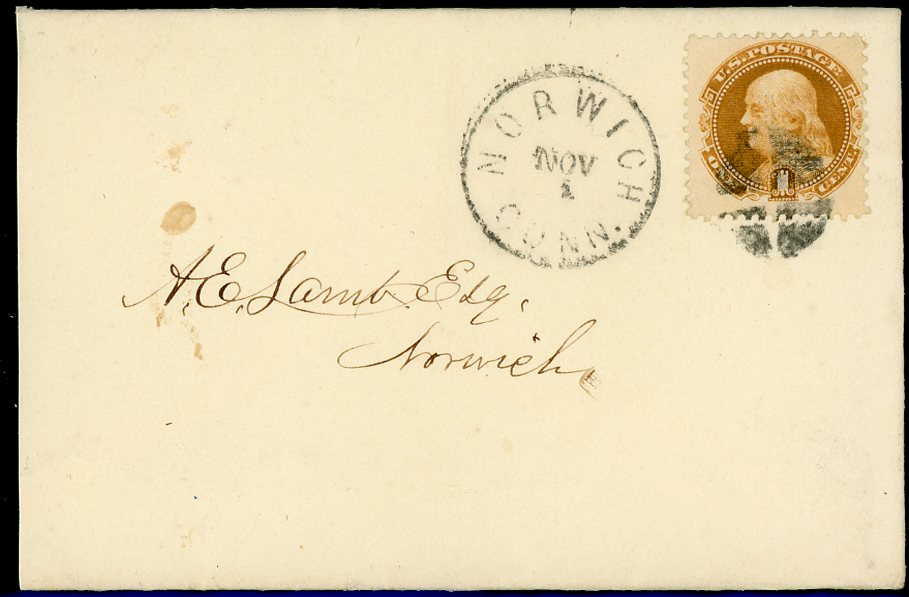 NORWICH
NOV
1
CONN.
U.S. POSTAGE
ONE 1 CENT
A. E. Lamb Esq.
Norwich